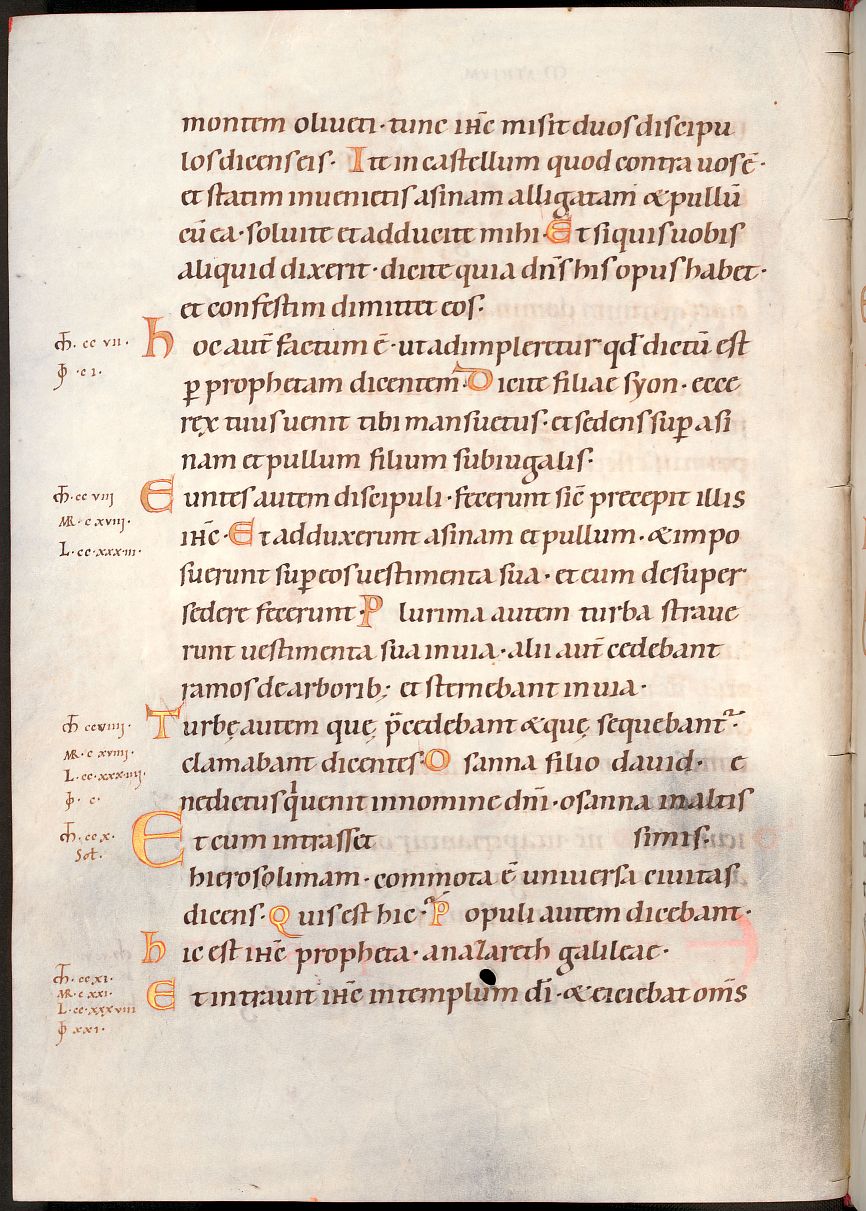 montem oliueti· tunc ihc̄ misit duos discipu
los dicens eis· Ite in castellum quod contra uos ē·
et statim inuenietis asinam alligatam & pullū
cū ea· soluite et adducite mihi· Et siquis uobis
aliquid dixerit· dicite quia dn̄s his opus habet·
et confestim dimittet eos·
ꝳ· cc vii·
hoc aut̄ factum ē· ut adimpleretur qd̄ dictū est
ꝑ prophetam dicentem· Dicite filiae syon· ecce
rex tuus uenit tibi mansuetus· et sedens sup̄ asi
nam et pullum filium subiugalis·
ꝳ· cc viii
MR· c xviii·
L· cc·xxx·iii·
Euntes autem discipuli· fecerunt sic̄ precepit illis
ihc̄· Et adduxerunt asinam et pullum· & impo
suerunt sup̄ eos uestimenta sua· et eum desuper
sedere fecerunt· Plurima autem turba straue
runt uestimenta sua in uia· alii aut̄ cedebant
ramos de arborib; et sternebant in uia·
ꝳ ccviiii·
MR· c xviiii·
L· cc·xxx·iiii·
Turbę autem quę p̄cedebant & quę sequebant᷑·
clamabant dicentes· Osanna filio dauid· e
nedictus qͥ uenit in nomine dn̄i· osanna in altis
ꝳ· cc x·
Sol·
Et cum intrasset simis·
hierosolimam· commota ē uniuersa ciuitas
dicens· Quis est hic· Populi autem dicebant·
hic est ihc̄ propheta· a nazareth galileae·
ꝳ· cc xi·
MR· c xxi·
L· cc·xxxviii
Et intrauit ihc̄ in templum dī· & eiciebat om̄s